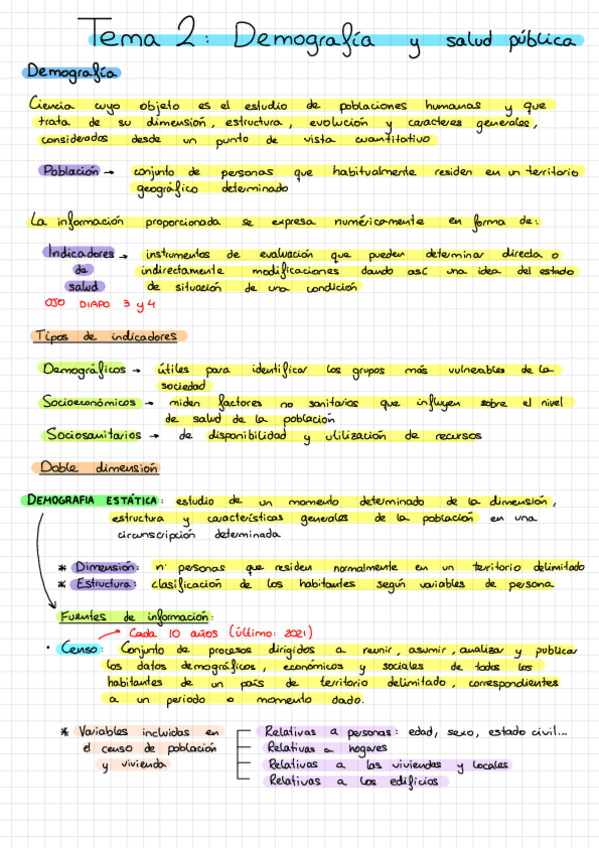 Tema 2: Demografía y salud pública
Demografía
Ciencia cuyo objeto es el estudio de poblaciones humanas y que
trata de su dimensión, estructura, evolución y caracteres generales,
considerados desde un punto de vista cuantitativo
Población → conjunto de personas que habitualmente residen en un territorio
geográfico determinado
La información proporcionada se expresa numéricamente en forma de:
Indicadores → instrumentos de evaluación que pueden determinar directa o
de indirectamente modificaciones dando así una idea del estado
salud de situación de una condición
OJO DIAPO 3 y 4
Tipos de indicadores
Demográficos → útiles para identificar los grupos más vulnerables de la
sociedad
Socioeconómicos → miden factores no sanitarios que influyen sobre el nivel
de salud de la población
Sociosanitarios → de disponibilidad y utilización de recursos
Doble dimensión
DEMOGRAFIA ESTÁTICA: estudio de un momento determinado de la dimensión,
estructura y características generales de la población en una
circunscripción determinada
* Dimensión: nº personas que residen normalmente en un territorio delimitado
* Estructura: clasificación de los habitantes según variables de persona
Fuentes de información:
→ Cada 10 años (último: 2021)
· Censo: Conjunto de procesos dirigidos a reunir, asumir, analizar y publicar
los datos demográficos, económicos y sociales de todos los
habitantes de un país de territorio delimitado, correspondientes
a un periodo o momento dado.
* Variables incluidas en Relativas a personas: edad, sexo, estado civil...
el censo de población Relativas a hogares
y vivienda Relativas a las viviendas y locales
Relativas a los edificios